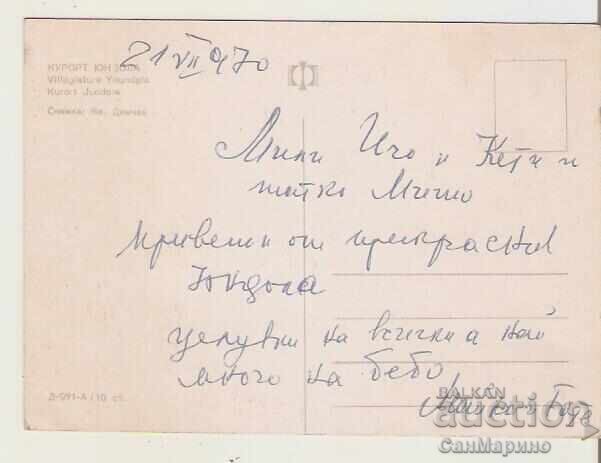 21 VII 970
КУРОРТ ЮНДОЛА
Villégiature Youndola
Kurort Jundola
Снимка:
Мили Ичо и Кети и
татко Мишо
привети от прекрасния
Юндола
целувки на всички а най
много на бебо
Д-991-А / 10 ст.
BALKAN
auction
СанМарино